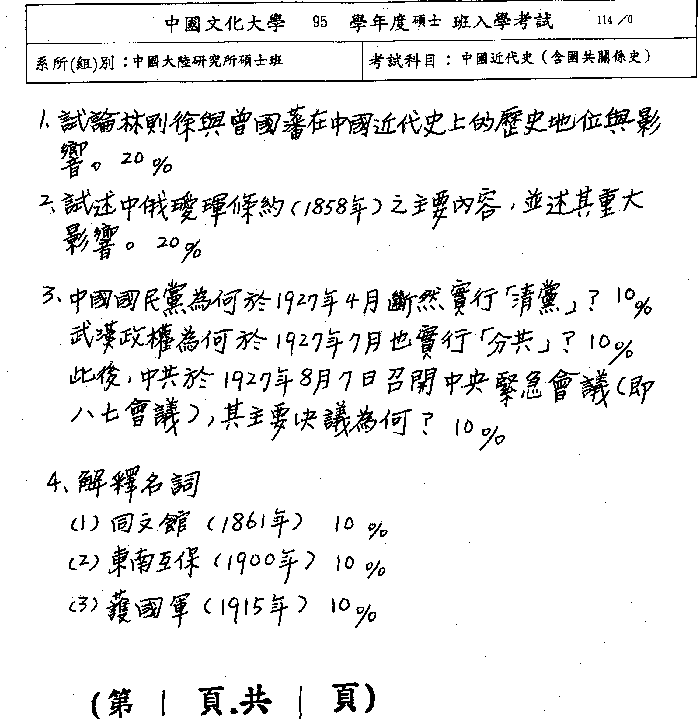 中國文化大學 95 學年度碩士 班入學考試 114/10
系所(組)別：中國大陸研究所碩士班 考試科目：中國近代史（含國共關係史）
1、試論林則徐與曾國藩在中國近代史上的歷史地位與影
響。20%
2、試述中俄璦琿條約(1858年)之主要內容，並述其重大
影響。20%
3、中國國民黨為何於1927年4月斷然實行「清黨」？10%
武漢政權為何於1927年7月也實行「分共」？10%
此後，中共於1927年8月7日召開中央緊急會議(即
八七會議)，其主要決議為何？10%
4、解釋名詞
(1)同文館(1861年) 10%
(2)東南互保(1900年) 10%
(3)護國軍(1915年) 10%
(第 1 頁.共 1 頁)